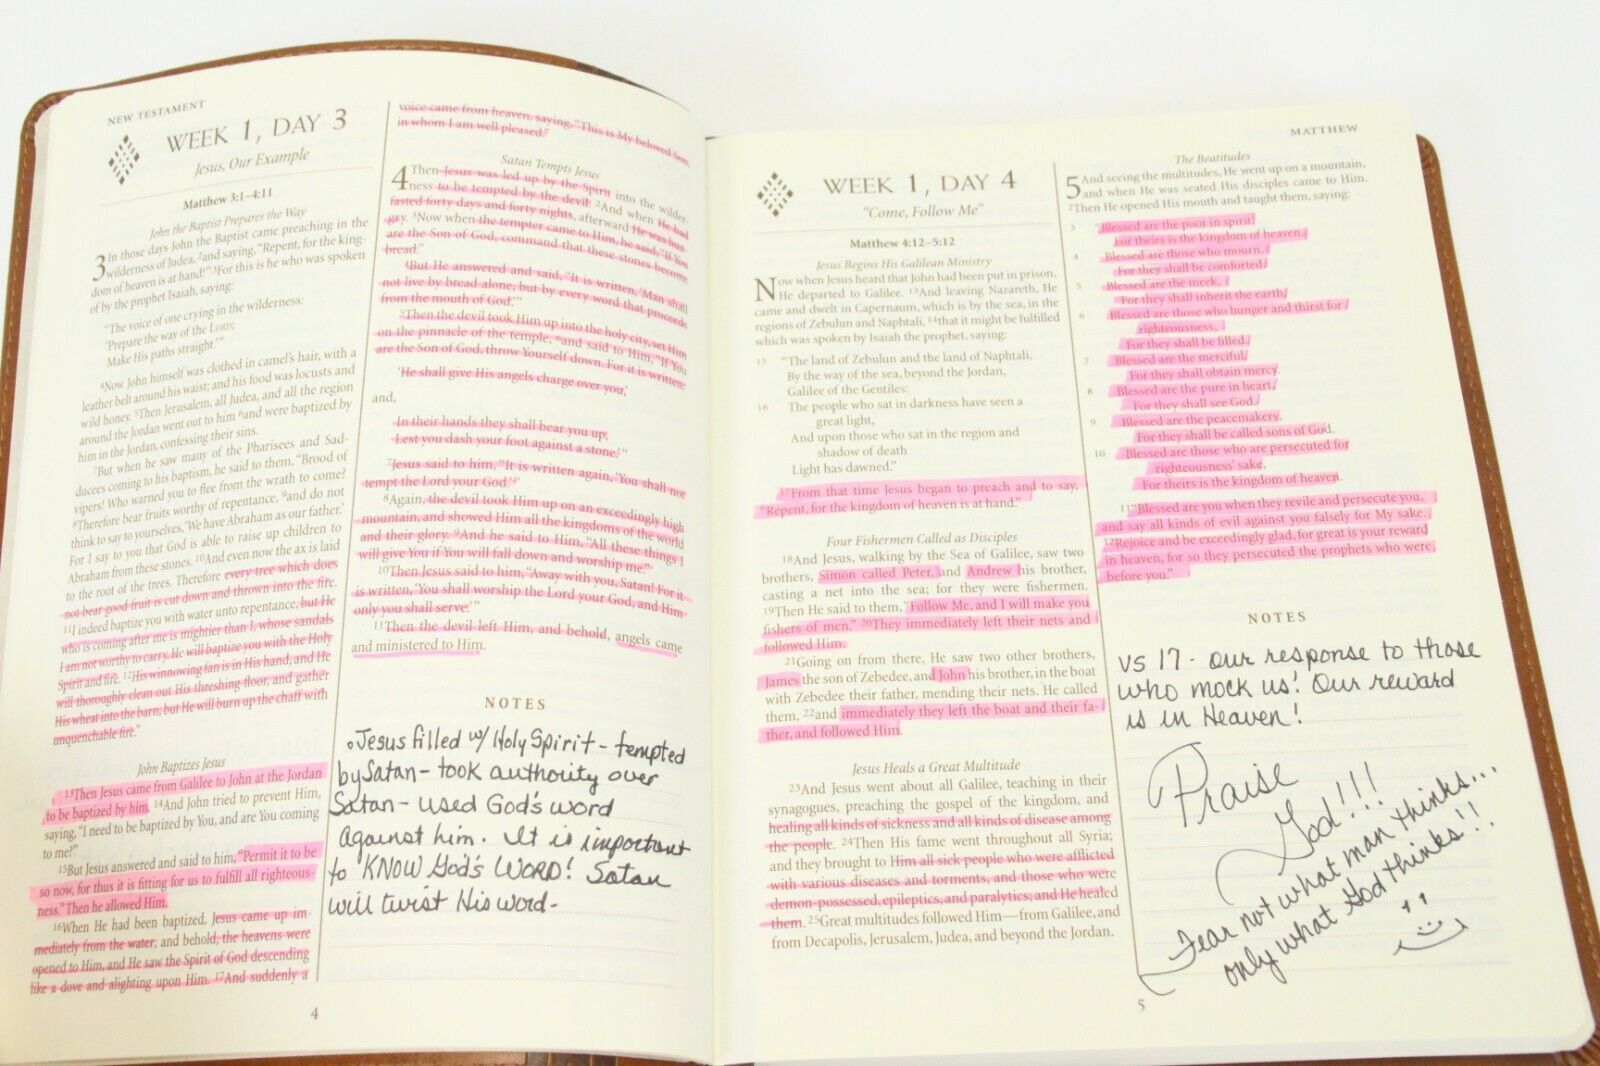 NEW TESTAMENT
WEEK 1, DAY 3
Jesus, Our Example
Matthew 3:1–4:11
John the Baptist Prepares the Way
3 In those days John the Baptist came preaching in the
wilderness of Judea, ²and saying, “Repent, for the king-
dom of heaven is at hand!” ³For this is he who was spoken
of by the prophet Isaiah, saying:
“The voice of one crying in the wilderness:
‘Prepare the way of the LORD;
Make His paths straight.’”
⁴Now John himself was clothed in camel’s hair, with a
leather belt around his waist; and his food was locusts and
wild honey. ⁵Then Jerusalem, all Judea, and all the region
around the Jordan went out to him ⁶and were baptized by
him in the Jordan, confessing their sins.
⁷But when he saw many of the Pharisees and Sad-
ducees coming to his baptism, he said to them, “Brood of
vipers! Who warned you to flee from the wrath to come?
⁸Therefore bear fruits worthy of repentance, ⁹and do not
think to say to yourselves, ‘We have Abraham as our father.’
For I say to you that God is able to raise up children to
Abraham from these stones. ¹⁰And even now the ax is laid
to the root of the trees. Therefore every tree which does
not bear good fruit is cut down and thrown into the fire.
¹¹I indeed baptize you with water unto repentance, but He
who is coming after me is mightier than I, whose sandals
I am not worthy to carry. He will baptize you with the Holy
Spirit and fire. ¹²His winnowing fan is in His hand, and He
will thoroughly clean out His threshing floor, and gather
His wheat into the barn; but He will burn up the chaff with
unquenchable fire.”
John Baptizes Jesus
¹³Then Jesus came from Galilee to John at the Jordan
to be baptized by him. ¹⁴And John tried to prevent Him,
saying, “I need to be baptized by You, and are You coming
to me?”
¹⁵But Jesus answered and said to him, “Permit it to be
so now, for thus it is fitting for us to fulfill all righteous-
ness.” Then he allowed Him.
¹⁶When He had been baptized, Jesus came up im-
mediately from the water; and behold, the heavens were
opened to Him, and He saw the Spirit of God descending
like a dove and alighting upon Him. ¹⁷And suddenly a
voice came from heaven, saying, “This is My beloved Son,
in whom I am well pleased.”
Satan Tempts Jesus
4 Then Jesus was led up by the Spirit into the wilder-
ness to be tempted by the devil. ²And when He had
fasted forty days and forty nights, afterward He was hun-
gry. ³Now when the tempter came to Him, he said, “If You
are the Son of God, command that these stones become
bread.”
⁴But He answered and said, “It is written, ‘Man shall
not live by bread alone, but by every word that proceeds
from the mouth of God.’”
⁵Then the devil took Him up into the holy city, set Him
on the pinnacle of the temple, ⁶and said to Him, “If You
are the Son of God, throw Yourself down. For it is written:
‘He shall give His angels charge over you,’
and,
‘In their hands they shall bear you up,
Lest you dash your foot against a stone.’”
⁷Jesus said to him, “It is written again, ‘You shall not
tempt the Lord your God.’”
⁸Again, the devil took Him up on an exceedingly high
mountain, and showed Him all the kingdoms of the world
and their glory. ⁹And he said to Him, “All these things I
will give You if You will fall down and worship me.”
¹⁰Then Jesus said to him, “Away with you, Satan! For it
is written, ‘You shall worship the Lord your God, and Him
only you shall serve.’”
¹¹Then the devil left Him, and behold, angels came
and ministered to Him.
NOTES
• Jesus filled w/ Holy Spirit – tempted
by Satan – took authority over
Satan – used God's word
against him. It is important
to KNOW God's WORD! Satan
will twist His word –
4
MATTHEW
WEEK 1, DAY 4
“Come, Follow Me”
Matthew 4:12–5:12
Jesus Begins His Galilean Ministry
Now when Jesus heard that John had been put in prison,
He departed to Galilee. ¹³And leaving Nazareth, He
came and dwelt in Capernaum, which is by the sea, in the
regions of Zebulun and Naphtali, ¹⁴that it might be fulfilled
which was spoken by Isaiah the prophet, saying:
15 “The land of Zebulun and the land of Naphtali,
By the way of the sea, beyond the Jordan,
Galilee of the Gentiles:
16 The people who sat in darkness have seen a
great light,
And upon those who sat in the region and
shadow of death
Light has dawned.”
¹⁷From that time Jesus began to preach and to say,
“Repent, for the kingdom of heaven is at hand.”
Four Fishermen Called as Disciples
¹⁸And Jesus, walking by the Sea of Galilee, saw two
brothers, Simon called Peter, and Andrew his brother,
casting a net into the sea; for they were fishermen.
¹⁹Then He said to them, “Follow Me, and I will make you
fishers of men.” ²⁰They immediately left their nets and
followed Him.
²¹Going on from there, He saw two other brothers,
James the son of Zebedee, and John his brother, in the boat
with Zebedee their father, mending their nets. He called
them, ²²and immediately they left the boat and their fa-
ther, and followed Him.
Jesus Heals a Great Multitude
²³And Jesus went about all Galilee, teaching in their
synagogues, preaching the gospel of the kingdom, and
healing all kinds of sickness and all kinds of disease among
the people. ²⁴Then His fame went throughout all Syria;
and they brought to Him all sick people who were afflicted
with various diseases and torments, and those who were
demon-possessed, epileptics, and paralytics; and He healed
them. ²⁵Great multitudes followed Him—from Galilee, and
from Decapolis, Jerusalem, Judea, and beyond the Jordan.
The Beatitudes
5 And seeing the multitudes, He went up on a mountain,
and when He was seated His disciples came to Him.
²Then He opened His mouth and taught them, saying:
3 “Blessed are the poor in spirit,
For theirs is the kingdom of heaven.
4 Blessed are those who mourn,
For they shall be comforted.
5 Blessed are the meek,
For they shall inherit the earth.
6 Blessed are those who hunger and thirst for
righteousness,
For they shall be filled.
7 Blessed are the merciful,
For they shall obtain mercy.
8 Blessed are the pure in heart,
For they shall see God.
9 Blessed are the peacemakers,
For they shall be called sons of God.
10 Blessed are those who are persecuted for
righteousness’ sake,
For theirs is the kingdom of heaven.
¹¹“Blessed are you when they revile and persecute you,
and say all kinds of evil against you falsely for My sake.
¹²Rejoice and be exceedingly glad, for great is your reward
in heaven, for so they persecuted the prophets who were
before you.”
NOTES
VS 17 - our response to those
who mock us! Our reward
is in Heaven!
Praise
God!!!
Fear not what man thinks...
only what God thinks!!
5